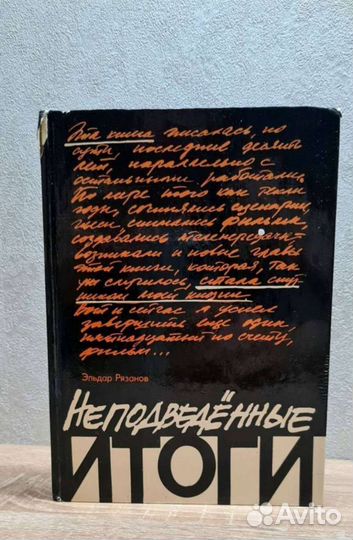 Эта книга писалась, по
сути, последние десять
лет, параллельно с
остальными работами.
По мере того как шли
годы, сочинялись сценарии,
пьесы, снимались фильмы,
создавались телепередачи -
возникали и новые главы
этой книги, которая, так
уж случилось, стала спут
ником моей жизни.
Вот и сейчас я успел
завершить ещё один,
пятнадцатый по счёту,
фильм...
Эльдар Рязанов
НЕПОДВЕДЁННЫЕ
ИТОГИ
Avito